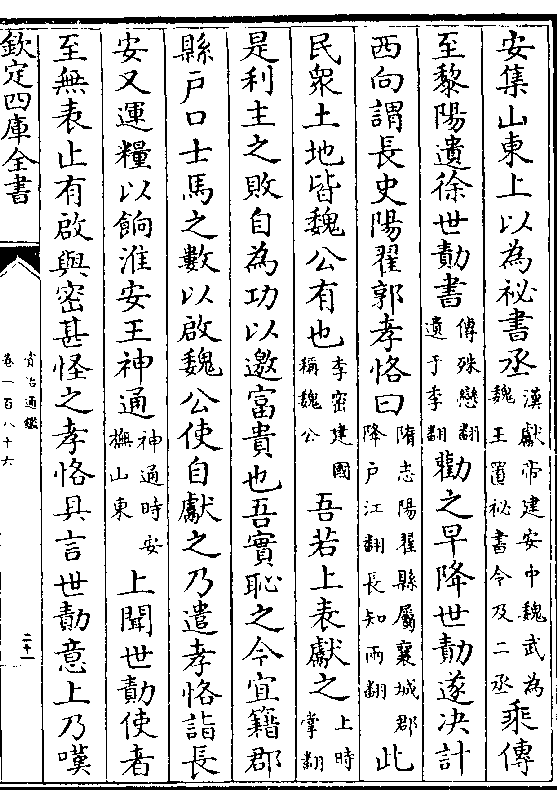 安集山東上以為祕書丞漢獻帝建安中魏武為魏王置祕書令及二丞乘傳
至黎陽遺徐世勣書傳殊戀翻遺于季翻勸之早降世勣遂決計
西向謂長史陽翟郭孝恪曰隋志陽翟縣屬襄城郡降戶江翻長知兩翻此
民衆土地皆魏公有也李密建國稱魏公吾若上表獻之上時掌翻
是利主之敗自為功以邀富貴也吾實恥之今宜籍郡
縣戶口士馬之數以啟魏公使自獻之乃遣孝恪詣長
安又運糧以餉淮安王神通神通時安撫山東上聞世勣使者
至無表止有啟與密甚怪之孝恪具言世勣意上乃嘆
欽定四庫全書
資治通鑑
卷一百八十六
二十一